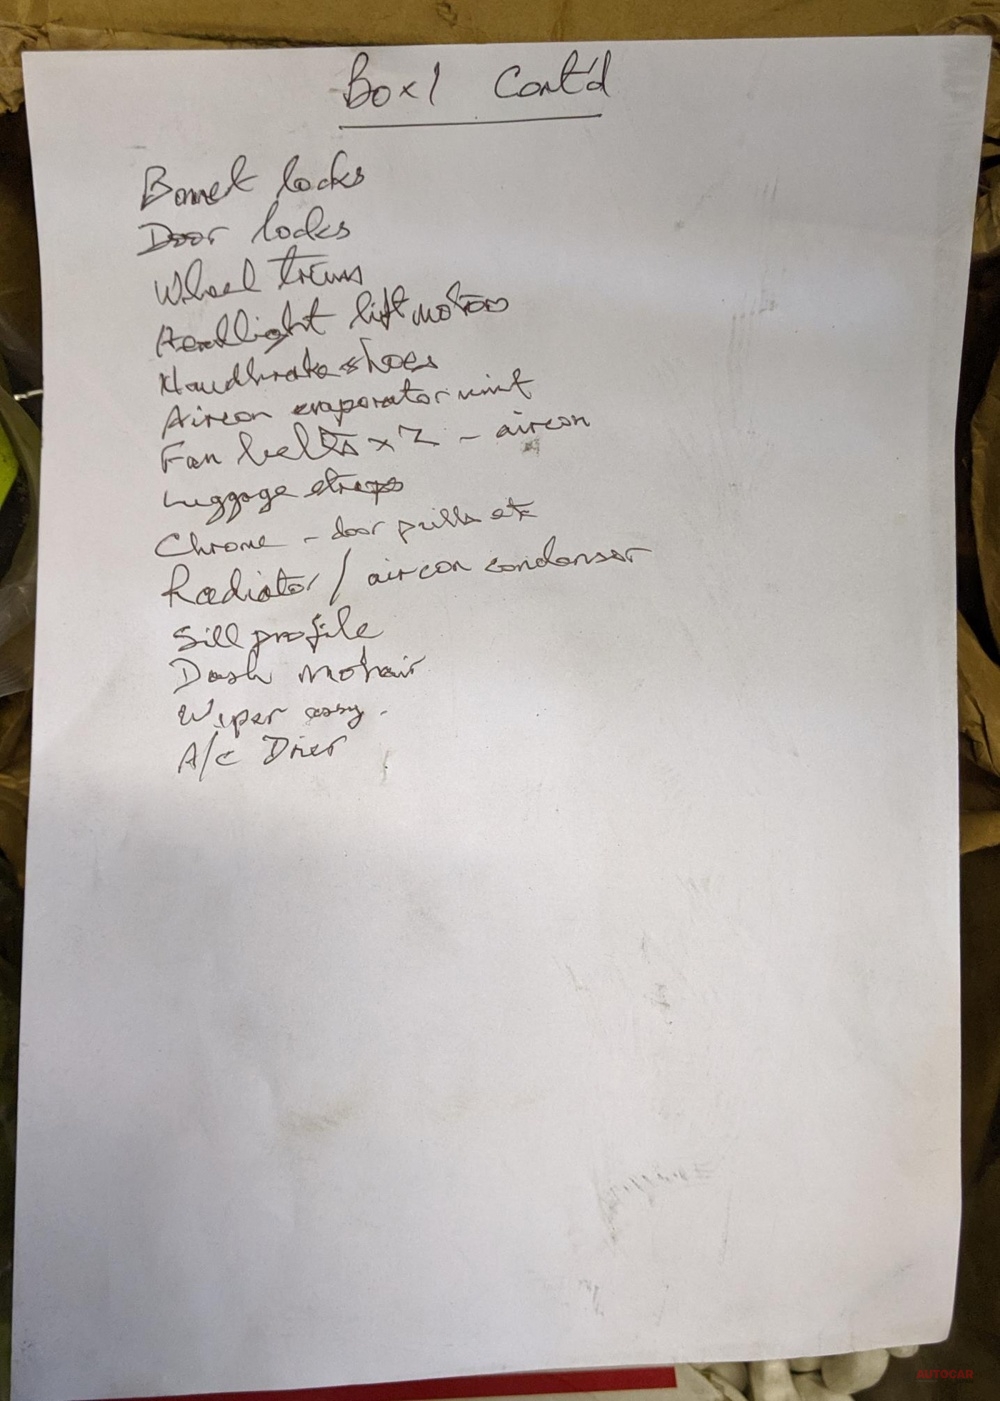 Box 1 Cont'd
Bonnet locks
Door locks
Wheel trims
Headlight lift motors
Handbrake shoes
Aircon evaporator unit
Fan belts x 2 - aircon
Luggage straps
Chrome - door pulls etc
Radiator / aircon condenser
Sill profile
Dash mohair
Wiper assy.
A/c Drier
AUTOCAR